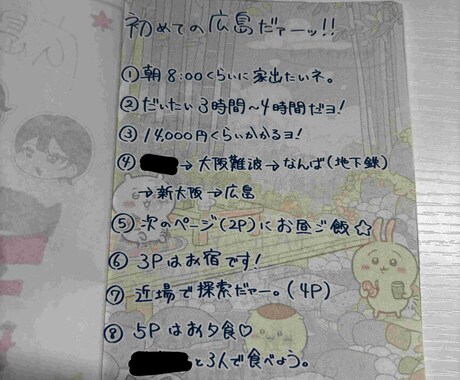 初めての広島だァーッ!!
① 朝8:00くらいに家出たいネ。
② だいたい3時間〜4時間だヨ!
③ 14,000円くらいかかるヨ!
④ →大阪難波→なんば(地下鉄)
→新大阪→広島
⑤ 次のページ(2P)にお昼ご飯☆
⑥ 3Pはお宿です!
⑦ 近場で探索だァー。(4P)
⑧ 5Pはお夕食♡
と3人で食べよう。